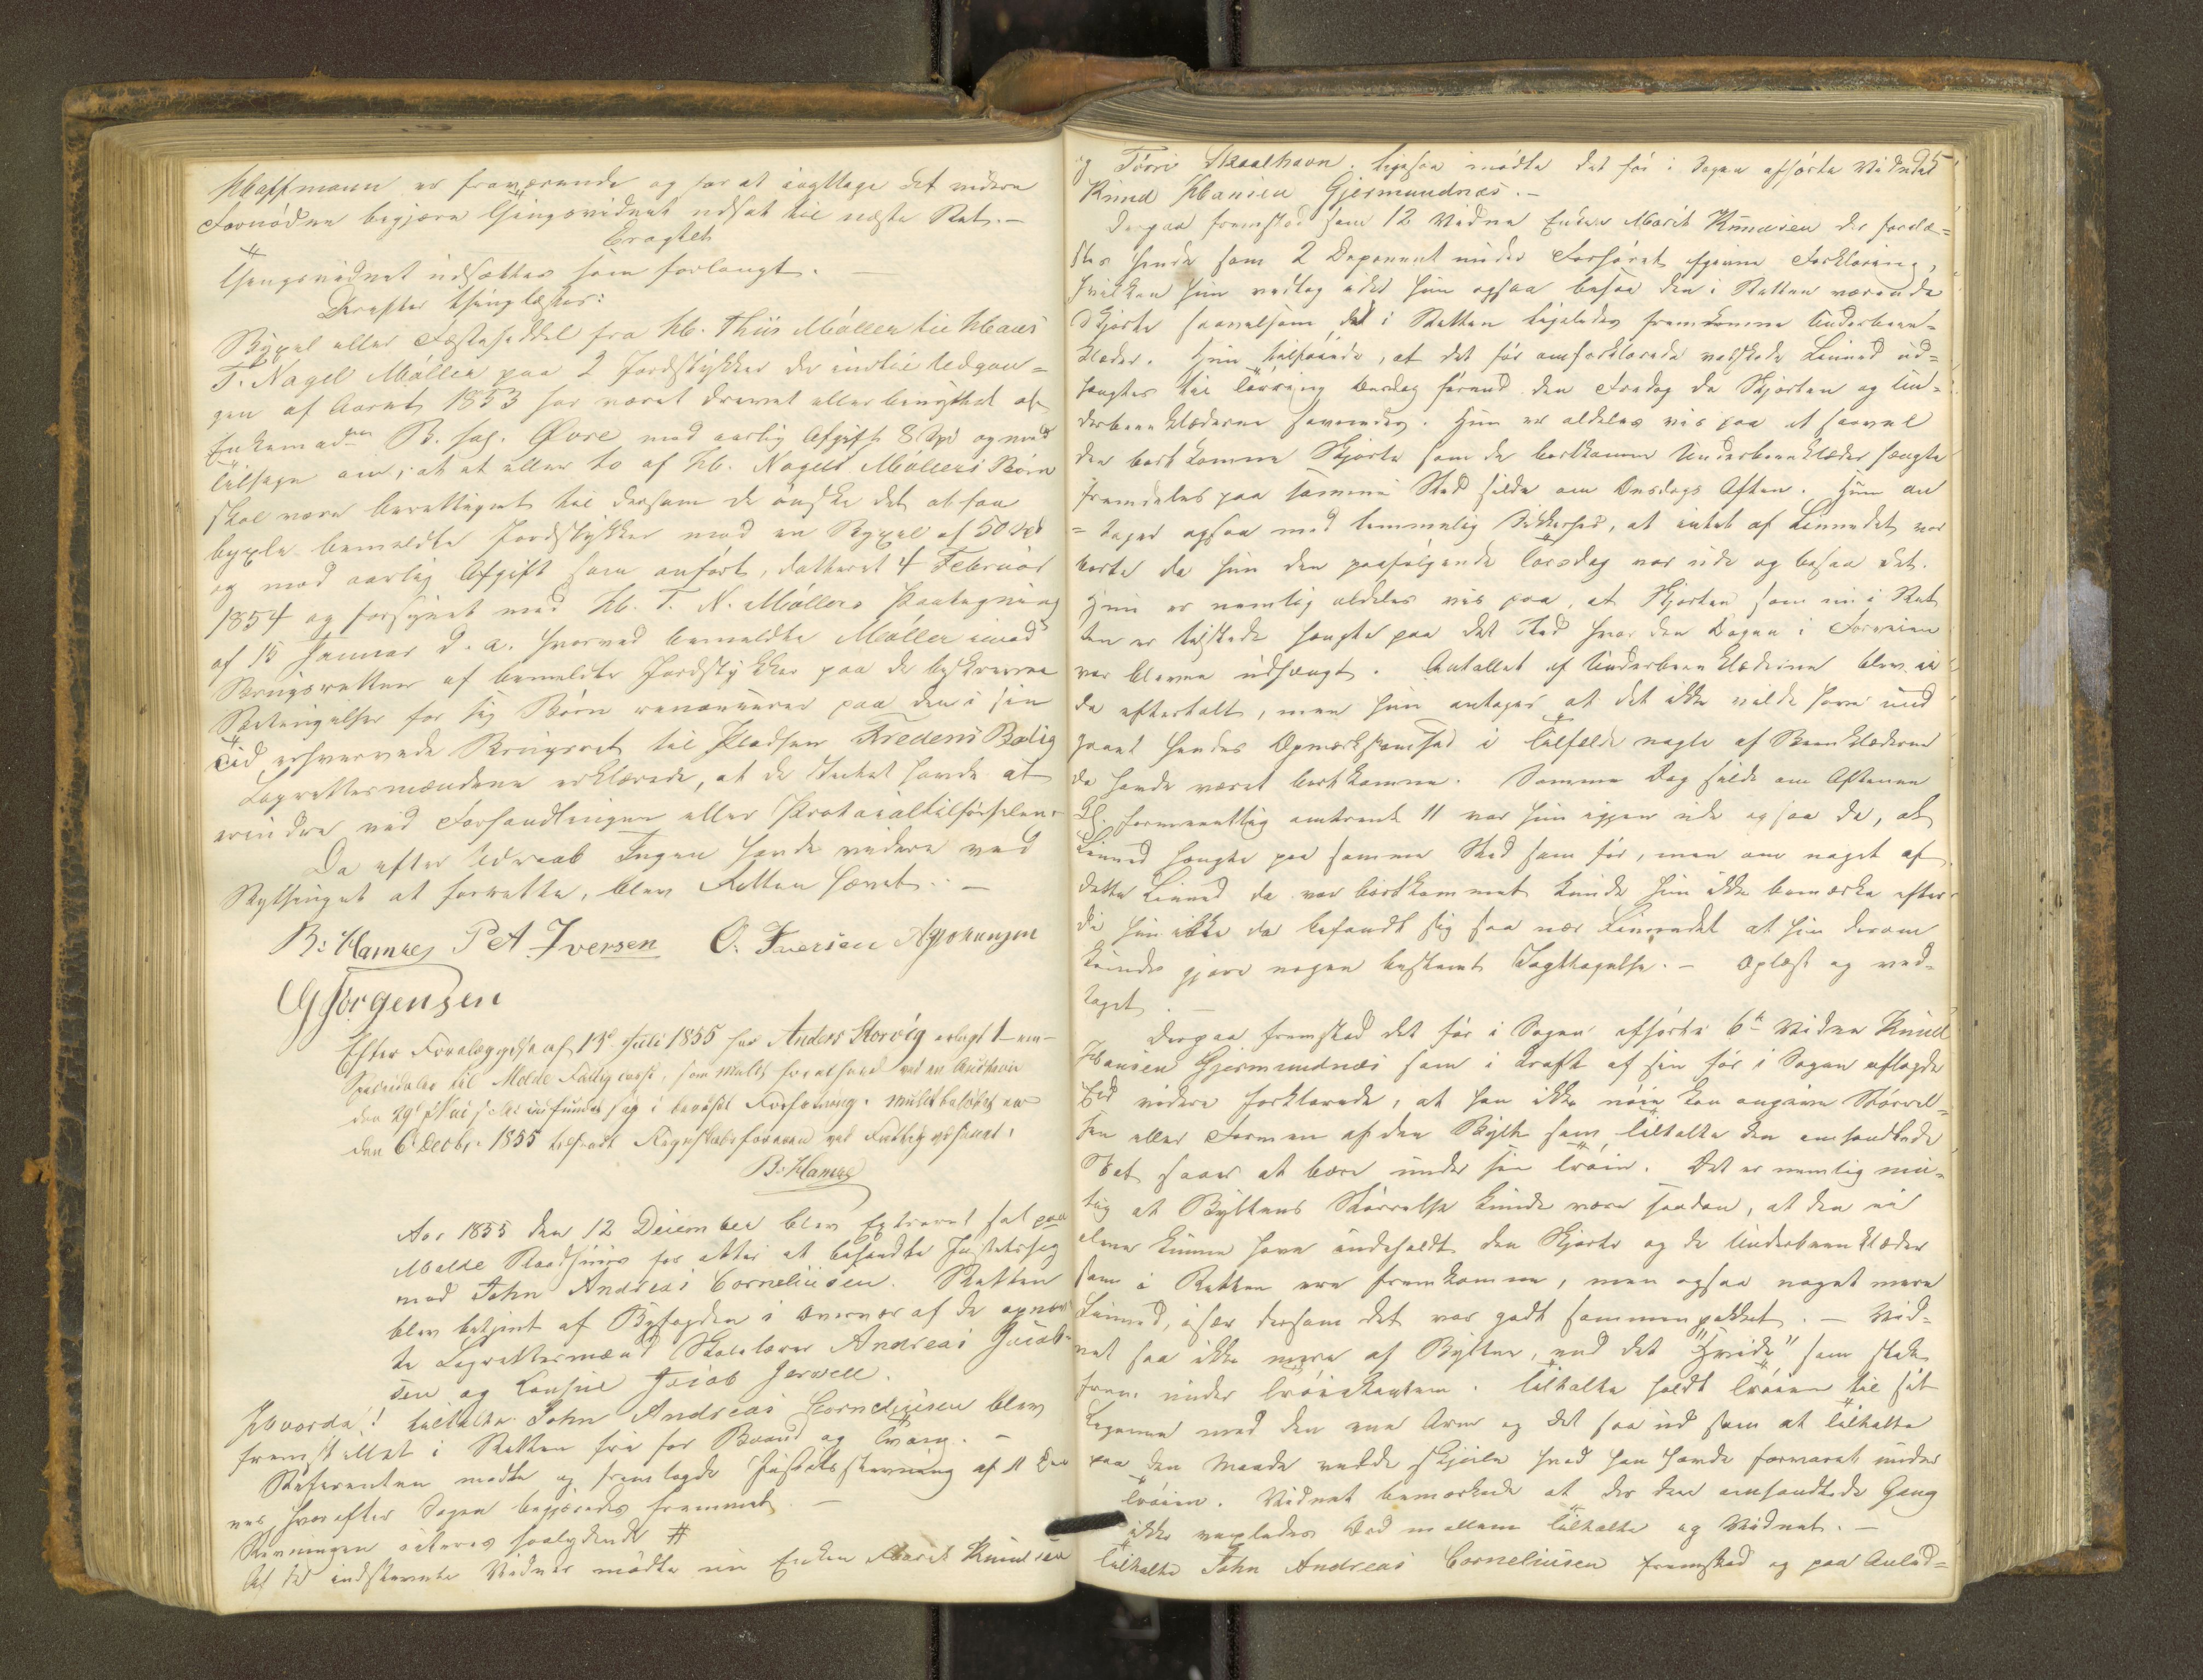 Hoffmann er fraværende og for at iagttage det videre
Fornødne begjærer Thingsvidnet udsat til næste Ret. –
Eragtet
Thingsvidnet udsættes som forlangt. –
Derefter thinglæstes:
Byxel eller Fæsteseddel fra H. Thiis Møller til Hans
T. Nagel Møller paa 2 Jordstykker der indtil Udgan-
gen af Aaret 1853 har været drevet eller benyttet af
Enkemadme B. sal. Øvre mod aarlig Afgift 8 Spd og med
Tilsagn om, at et eller to af H. Nagel Møllers Børn
skal være berettiget til dersom de ønske det at faa
byxle bemeldte Jordstykker mod en Byxel af 50 Spd
og mod aarlig Afgift som anført, datteret 4 Februar
1854 og forsynet med H. T. N. Møllers Paategning
af 15 Januar d. a. hvorved bemeldte Møller imod
Brugsretten af bemeldte Jordstykker paa de beskrevne
Betingelser for sig Børn renoncerer paa den i sin
Tid erhvervede Brugsret til Pladsen Fredens Bolig
Lagrettesmændene erklærede, at de Intet havde at
erindre ved Forhandlingen eller Protocoltilførselen.
Da efter Udraab Ingen havde videre ved
Bythinget at forrette, blev Retten hævet. –
B: Hamre P A Iversen O. Iversen
G Jørgensen
Efter Forelæggelse af 13d Juli 1855 har Anders Storvig erlagt 1 – een –
Speciedaler til Molde Fattigcasse, som Mulct for at have ved en Auction
den 29d Mai indfundet sig i beruset Forfatning. Mulctbeløbet er
den 6 Decbr. 1855 tilsendt Regnskabsføreren ved Fattigvæsenet.
B: Hamre
Aar 1855 den 12 December blev Extraret sat paa
Molde Raadhuus for atter at behandle Justitssag
mod John Andreas Corneliusen. Retten
blev betjent af Byfogden i Overvær af de opnævn-
te Lagrettesmænd Skolelærer Andreas Jacob-
sen og Consul Jacob Jervell.
Hvorda! Tiltalte John Andreas Corneliusen blev
fremstillet i Retten fri for Baand og Tvang. –
Referenten mødte og fremlagde Justitsstevning af 11 De
res, hvorefter Sagen begjæredes fremmet. –
Stevningen iføres saalydende #
Af de indstevnte Vidner mødte nu Enken Marit Knudsen
95
og Torri Skaalhavn. Ligesaa mødte det før i Sagen afhørte Vidnet
Knud Hansen Gjermundnæs. –
Derpaa fremstod som 12 Vidne Enken Marit Knudsen der forelæ-
stes hende som 2 Deponent under Forhøret afgivne Forklaring,
hvilken hun vedtog idet hun ogsaa besaa den i Retten værende
Skjorte saavelsom det i Retten ligeledes fremkomne Underbeen-
klæder. Hun tilføiede, at det før omforklarede vaskede Linned ud-
hængtes til Tørring Onsdag forend den Fredag da Skjorten og Un-
derbeenklæderne savnedes. Hun er aldeles vis paa at saavel
den bortkomne Skjorte som de bortkomne Underbeenklæder hængte
fremdeles paa samme Sted silde om Onsdags Aften. Hun an
= tager ogsaa med temmelig Sikkerhed, at intet af Linnedet var
borte da hun den paafølgende Torsdag var ude og besaa det.
Hun er nemlig aldeles vis paa, at Skjorten som nu i Ret
ten er tilstede hængte paa det Sted hvor den Dagen i Forveien
var bleven udhængt. Antallet af Underbeenklæderne blev ei
da eftertalt, men hun antager at det ikke vilde have und
gaaet hendes Opmærksomhed i Tilfælde nogle af Beenklæderne
da havde været bortkomne. Samme Dag silde om Aftenen
Kl. formeentlig omtrent 11 var hun igjen ude og saa da, at
Linned hængte paa samme Sted som før, men om noget af
dette Linned da var bortkommet kunde hun ikke bemærke efter-
di hun ikke da befandt sig saa nær Linnedet at hun derom
kunde gjøre nogen bestemt Iagttagelse. – Oplæst og ved-
taget. –
Derpaa fremstod det før i Sagen afhørte 6te Vidne Knud
Hansen Gjermundnæs som i Kraft af sin før i Sagen aflagde
Eed videre forklarede, at han ikke nøie kan angive Størrel-
sen eller Formen af den Bylt som Tiltalte den omhandlede
Nat saaes at bære under sin Trøie. Det er nemlig mu-
ligt at Byltens Størrelse kunde være saadan, at den ei
alene kunne have indeholdt den Skjorte og de Underbeenklæder
som i Retten ere fremkomne, men ogsaa noget mere
Linned, især dersom det var godt sammenpakket. – Vid-
net saa ikke mere af Bylten, end det "Hvide" som stak
frem under Trøiekanten. Tiltalte holdt Trøien til sit
Legeme med den ene Arm og det saa ud som at Tiltalte
paa den Maade vilde skjule hvad han havde forvaret under
Trøien. Vidnet bemærkede at der den omhandlede Gang
ikke vexledes Ord mellem Tiltalte og Vidnet. –
Tiltalte John Andreas Corneliusen fremstod og paa Anled-